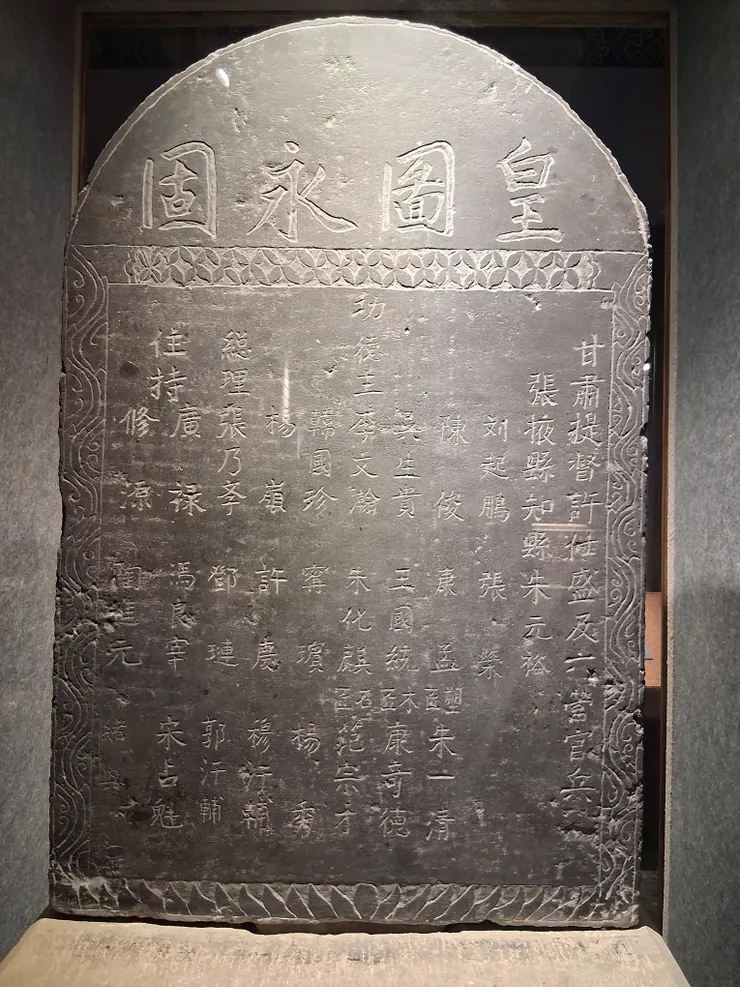 皇圖永固
甘肅提督許仕盛及六營官兵
張掖縣知縣朱元裕
刘起鵬 張榮
陳俊 康孟 塑匠 朱一清
吳生貴 王國統 木匠 康奇德
功德主 李文瀚 朱化麒 石匠 范宗才
韓國珍 甯瓊 楊秀
楊嶺 許慶 穆沂輔
総理張乃孝 鄧璉 郭汧輔
住持 廣禄 馮良宰 宋占魁
修源 藺進元